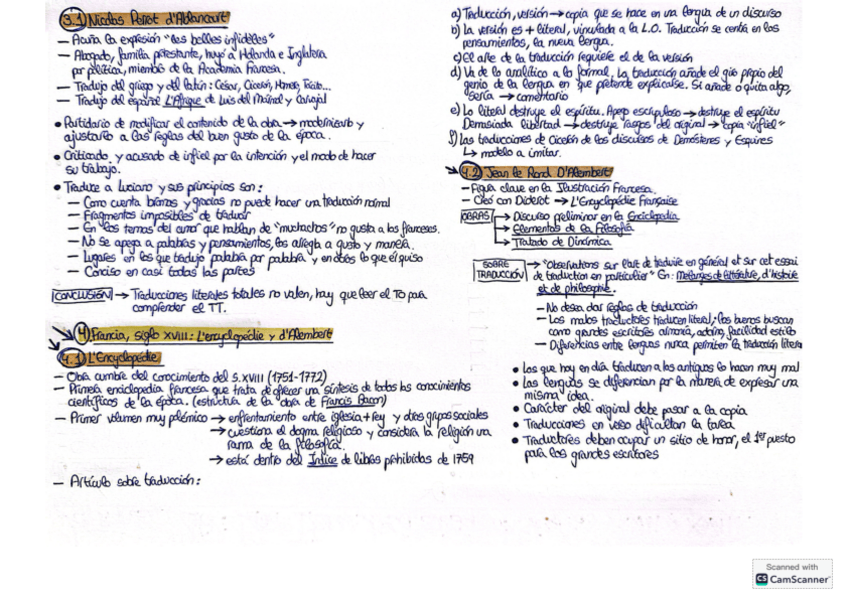 3.1) Nicolas Perrot d'Ablancourt
– Acuña la expresión "les belles infidèles"
– Abogado, familia protestante, huyó a Holanda e Inglaterra
por política, miembro de la Academia Francesa.
– Tradujo del griego y del latín: César, Cicerón, Homero, Tácito...
– Tradujo del español L'Afrique de Luis del Mármol y Carvajal
• Partidario de modificar el contenido de la obra → modernizarlo y
ajustarlo a las reglas del buen gusto de la época.
• Criticado y acusado de infiel por la intención y el modo de hacer
su trabajo.
• Traduce a Luciano y sus principios son:
– Como cuenta bromas y gracias no puede hacer una traducción normal
– Fragmentos imposibles de traducir
– En los temas del amor que hablan de "muchachos" no gusta a los franceses.
– No se apega a palabras y pensamientos, los arregla a gusto y manera.
– Lugares en los que tradujo palabra por palabra y en otros lo que él quiso
– Conciso en casi todas las partes
CONCLUSIÓN → Traducciones literales totales no valen, hay que leer el TO para
comprender el TT.
4) Francia, siglo XVIII: L'encyclopédie y d'Alembert
4.1) L'Encyclopédie
– Obra cumbre del conocimiento del S.XVIII (1751-1772)
– Primera enciclopedia francesa que trata de ofrecer una síntesis de todos los conocimientos
científicos de la época. (estructura de la obra de Francis Bacon)
– Primer volumen muy polémico → enfrentamiento entre iglesia + rey y otros grupos sociales
→ cuestiona el dogma religioso y considera la religión una
rama de la filosofía.
→ está dentro del Índice de libros prohibidos de 1759
– Artículo sobre traducción:
a) Traducción, versión → copia que se hace en una lengua de un discurso
b) La versión es + literal, vinculada a la L.O. Traducción se centra en los
pensamientos, la nueva lengua.
c) El arte de la traducción requiere el de la versión
d) Va de lo analítico a lo formal. La traducción añade el giro propio del
genio de la lengua en que pretende explicarse. Si añade o quita algo,
sería → comentario
e) Lo literal destruye el espíritu. Apego escrupuloso → destruye el espíritu
Demasiada libertad → destruye rasgos del original → copia "infiel"
f) Las traducciones de Cicerón de los discursos de Demóstenes y Esquines
↳ modelo a imitar.
4.2) Jean le Rond D'Alembert
– Figura clave en la Ilustración Francesa.
– Creó con Diderot → L'Encyclopédie Française
OBRAS → Discurso preliminar en la Enciclopedia
→ Elementos de la Filosofía
→ Tratado de Dinámica
SOBRE TRADUCCIÓN → "Observations sur l'art de traduire en général et sur cet essai
de traduction en particulier" En: Mélanges de littérature, d'histoire
et de philosophie.
– No desea dar reglas de traducción
– Los malos traductores traducen literal; los buenos buscan
como grandes escritores armonía, adorno, facilidad estilo
– Diferencias entre lenguas nunca permiten la traducción litera
• Los que hoy en día traducen a los antiguos lo hacen muy mal
• Las lenguas se diferencian por la manera de expresar una
misma idea.
• Carácter del original debe pasar a la copia
• Traducciones en verso dificultan la tarea
• Traductores deben ocupar un sitio de honor, el 1er puesto
para los grandes escritores
Scanned with
CS CamScanner